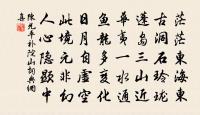 茫茫東海東
古洞石玲瓏
蓬島三山近
華夷一水通
魚龍多變化
日月自虛空
此境元非幻
人心隱顯中
陳元平補陀山詞典網
集